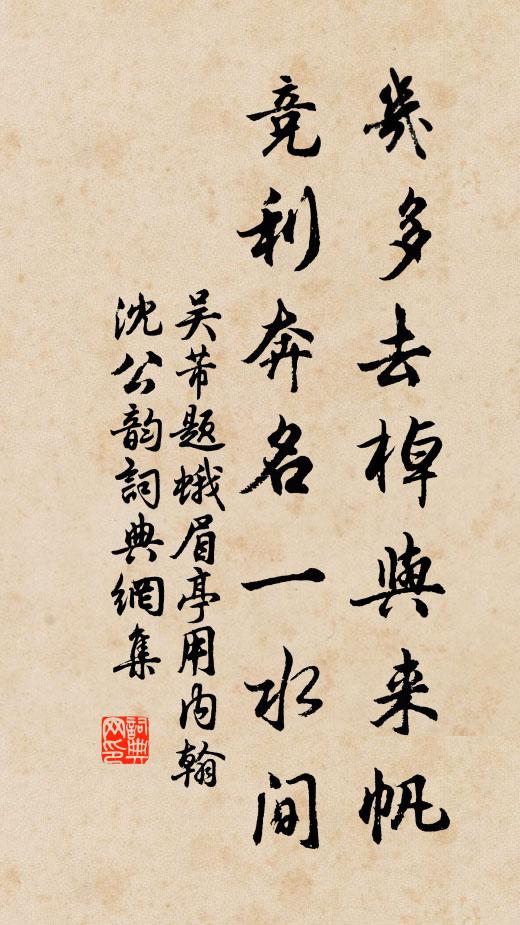 幾多去棹與来帆
竞利奔名一水间
吴芾题蛾眉亭用内翰
沈公韵詞典網集
詞典网印